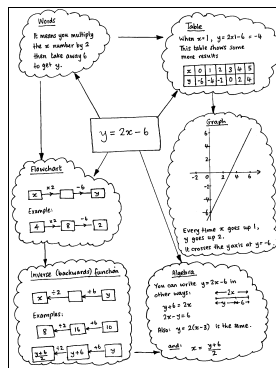 Words
It means you multiply
the x number by 2
then take away 6
to get y.
Table
When x=1, y=2x1-6=-4
This table shows some
more results
x 0 1 2 3 4 5
y -6 -4 -2 0 2 4
y=2x-6
Graph
6
4
2
2 4 6
-2
-4
-6
Every time x goes up 1,
y goes up 2.
It crosses the y axis at y=-6.
Flowchart
x2 -6
x y
Example:
x2 -6
4 8 2
Inverse (backwards) function
÷2 +6
x y
Examples:
÷2 +6
8 16 10
÷2 +6
y+6/2 y+6 y
Algebra
You can write y=2x-6 in
other ways:
y+6=2x
2x-y=6
2x
y 6
Also: y=2(x-3) is the same.
and: x = y+6/2